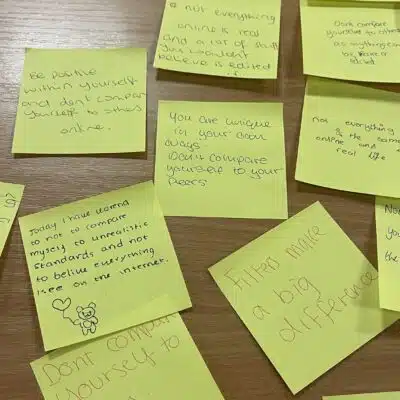 not everything
online is real
and a lot of stuff
you wouldnt
believe is edited
Dont compare
yourself to others
as anything can
be fake or
edited
Be positive
within yourself
and dont compare
yourself to others
online.
You are unique
in your own
ways
Don't compare
yourself to your
peers
not everything
is the same
online and
real life
Today I have learnd
to not to compare
myself to unrealistic
standards and not
to belive everything
I see on the internet.
Filters make
a big
difference
Not
you
the
Dont compare
yourself to